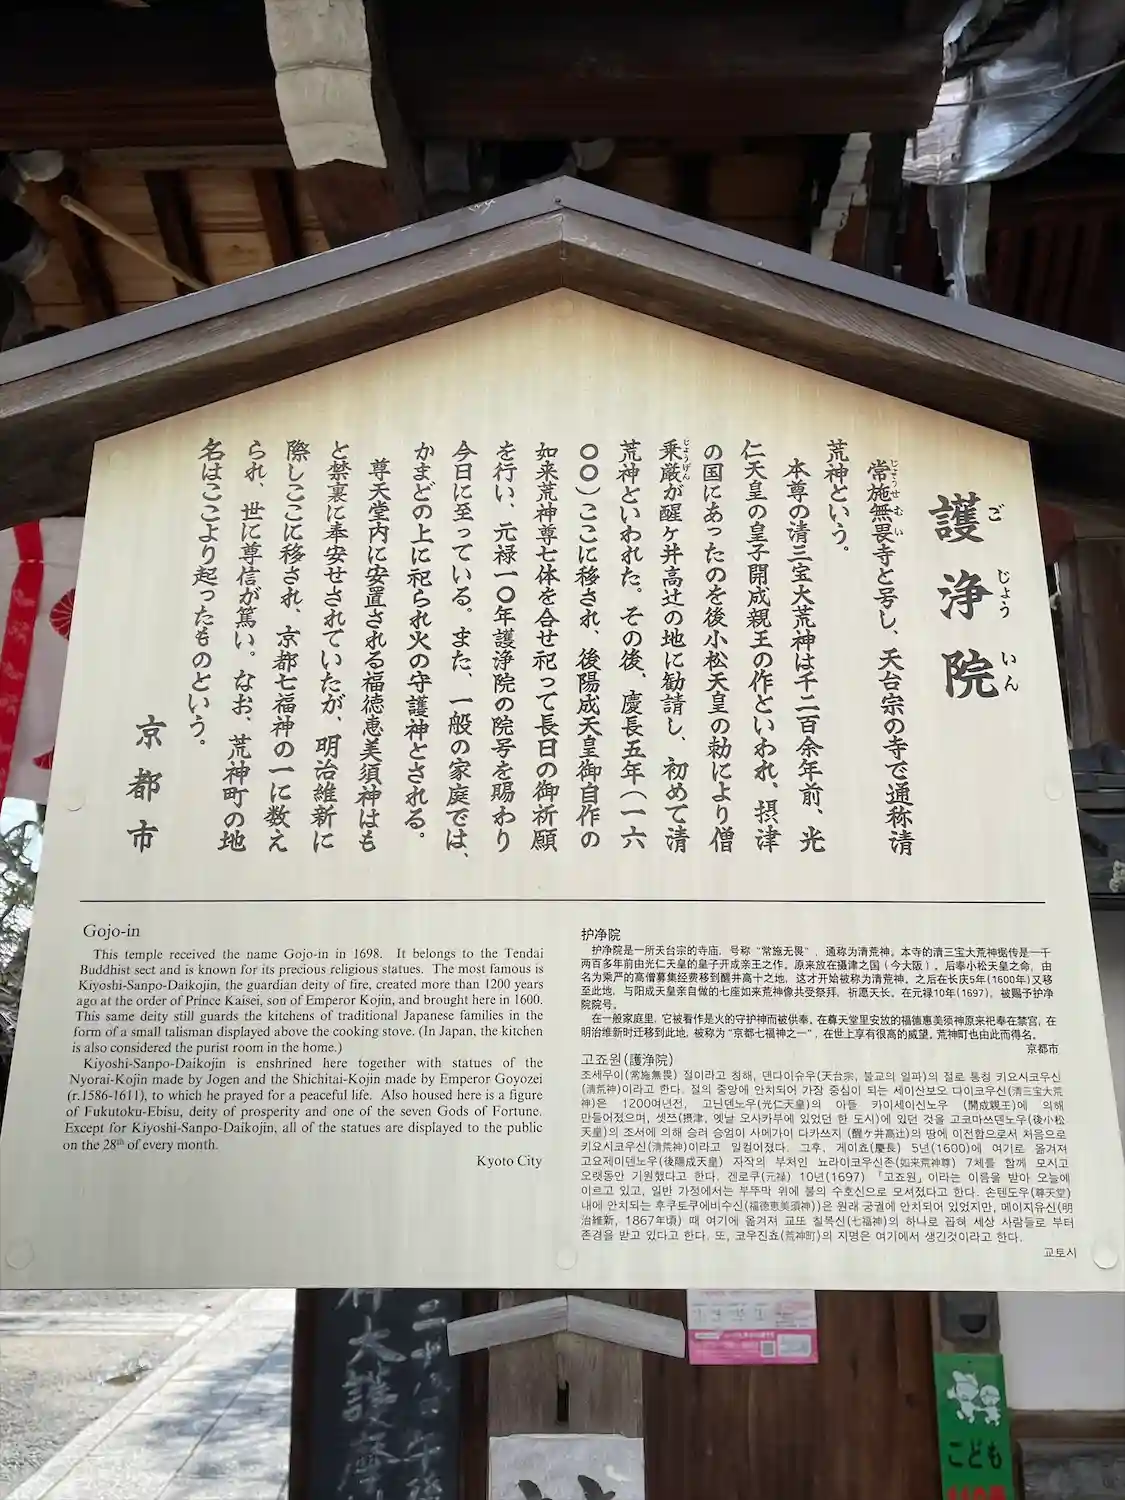 護浄院
ごじょういん
常施無畏寺と号し、天台宗の寺で通称清
荒神という。
本尊の清三宝大荒神は千二百余年前、光
仁天皇の皇子開成親王の作といわれ、摂津
の国にあったのを後小松天皇の勅により僧
乗厳が醒ヶ井高辻の地に勧請し、初めて清
荒神といわれた。その後、慶長五年(一六
〇〇)ここに移され、後陽成天皇御自作の
如来荒神尊七体を合せ祀って長日の御祈願
を行い、元禄一〇年護浄院の院号を賜わり
今日に至っている。また、一般の家庭では、
かまどの上に祀られ火の守護神とされる。
尊天堂内に安置される福徳恵美須神はも
と禁裏に奉安せされていたが、明治維新に
際しここに移され、京都七福神の一に数え
られ、世に尊信が篤い。なお、荒神町の地
名はここより起ったものという。
京都市
Gojo-in
This temple received the name Gojo-in in 1698. It belongs to the Tendai
Buddhist sect and is known for its precious religious statues. The most famous is
Kiyoshi-Sanpo-Daikojin, the guardian deity of fire, created more than 1200 years
ago at the order of Prince Kaisei, son of Emperor Kojin, and brought here in 1600.
This same deity still guards the kitchens of traditional Japanese families in the
form of a small talisman displayed above the cooking stove. (In Japan, the kitchen
is also considered the purist room in the home.)
Kiyoshi-Sanpo-Daikojin is enshrined here together with statues of the
Nyorai-Kojin made by Jogen and the Shichitai-Kojin made by Emperor Goyozei
(r.1586-1611), to which he prayed for a peaceful life. Also housed here is a figure
of Fukutoku-Ebisu, deity of prosperity and one of the seven Gods of Fortune.
Except for Kiyoshi-Sanpo-Daikojin, all of the statues are displayed to the public
on the 28th of every month.
Kyoto City
护净院
护净院是一所天台宗的寺庙，号称“常施无畏”，通称为清荒神。本寺的清三宝大荒神据传是一千
两百多年前由光仁天皇的皇子开成亲王之作，原来放在摄津之国（今大阪），后奉小松天皇之命，由
名为乘严的高僧募集经费移到醒井高十之地，这才开始被称为清荒神。之后在长庆5年(1600年)又移
至此地，与阳成天皇亲自做的七座如来荒神像共受祭拜，祈愿天长。在元禄10年(1697)，被赐予护净
院院号。
在一般家庭里，它被看作是火的守护神而被供奉。在尊天堂里安放的福德惠美须神原来祀奉在禁宫，在
明治维新时迁移到此地，被称为“京都七福神之一”，在世上享有很高的威望。荒神町也由此而得名。
京都市
고죠원(護浄院)
조세무이(常施無畏) 절이라고 칭해, 덴다이슈우(天台宗, 불교의 일파)의 절로 통칭 키요시코우신
(清荒神)이라고 한다. 절의 중앙에 안치되어 가장 중심이 되는 세이산보오 다이코우신(清三宝大荒
神)은 1200여년전, 고닌덴노우(光仁天皇)의 아들 카이세이신노우 (開成親王)에 의해
만들어졌으며, 셋쯔(摂津, 옛날 오사카부에 있었던 한 도시)에 있던 것을 고코마쯔덴노우(後小松
天皇)의 조서에 의해 승려 승엄이 사메가이 다카쓰지 (醒ケ井高辻)의 땅에 이전함으로서 처음으로
키요시코우신(清荒神)이라고 일컬어졌다. 그후, 게이쵸(慶長) 5년(1600)에 여기로 옮겨져
고요제이덴노우(後陽成天皇) 자작의 부처인 뇨라이코우신존(如来荒神尊) 7체를 함께 모시고
오랫동안 기원했다고 한다. 겐로쿠(元禄) 10년(1697) 「고죠원」이라는 이름을 받아 오늘에
이르고 있고, 일반 가정에서는 부뚜막 위에 불의 수호신으로 모셔졌다고 한다. 손텐도우(尊天堂)
내에 안치되는 후쿠토쿠에비수신(福徳恵美須神)은 원래 궁궐에 안치되어 있었지만, 메이지유신(明
治維新, 1867年頃) 때 여기에 옮겨져 교또 칠복신(七福神)의 하나로 꼽혀 세상 사람들로 부터
존경을 받고 있다고 한다. 또, 코우진쵸(荒神町)의 지명은 여기에서 생긴것이라고 한다.
교토시
こども